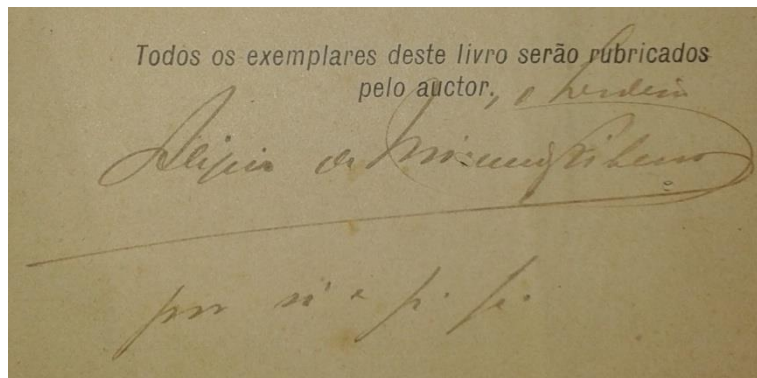 Todos os exemplares deste livro serão rubricados
pelo auctor, e herdeiro
Alipio de Miranda Ribeiro
por si e p. p.